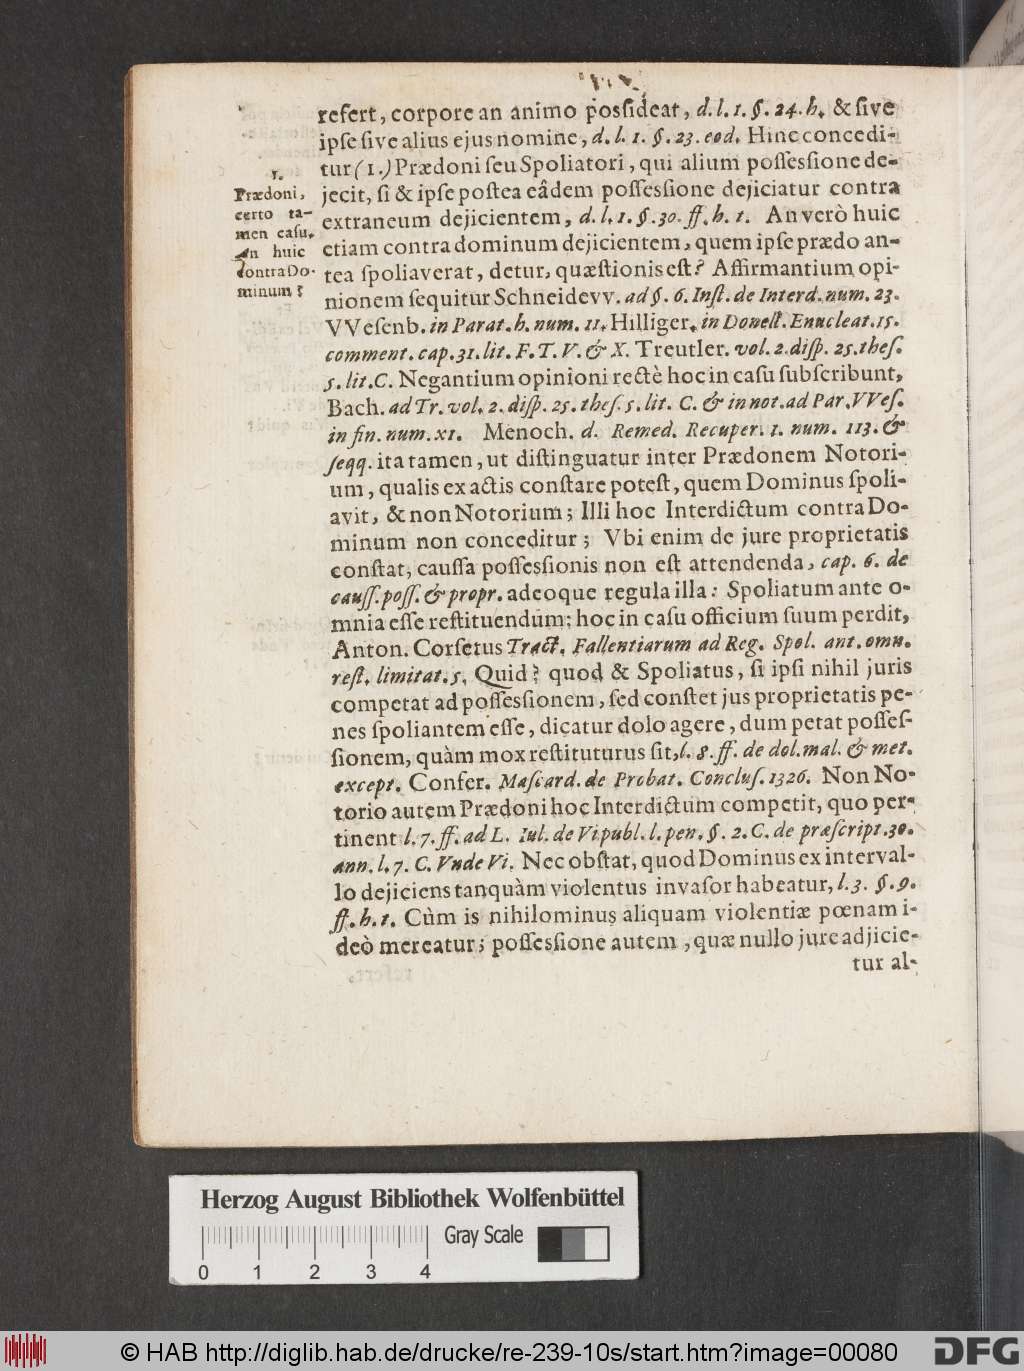 refert, corpore an animo possideat, d. l. 1. §. 24. h. & sive
ipse sive alius ejus nomine, d. l. 1. §. 23. eod. Hinc concedi-
tur (1.) Prædoni seu Spoliatori, qui alium possessione de-
jecit, si & ipse postea eâdem possessione dejiciatur contra
extraneum dejicientem, d. l. 1. §. 30. ff. h. t. An verò huic
etiam contra dominum dejicientem, quem ipse prædo an-
tea spoliaverat, detur, quæstionis est? Affirmantium opi-
nionem sequitur Schneidevv. ad §. 6. Inst. de Interd. num. 23.
VVesenb. in Parat. h. num. 11. Hilliger. in Donell. Enucleat. 15.
comment. cap. 31. lit. F. T. V. & X. Treutler. vol. 2. disp. 25. thes.
5. lit. C. Negantium opinioni rectè hoc in casu subscribunt,
Bach. ad Tr. vol. 2. disp. 25. thes. 5. lit. C. & in not. ad Par. VVes.
in fin. num. XI. Menoch. d. Remed. Recuper. 1. num. 113. &
seqq. ita tamen, ut distinguatur inter Prædonem Notori-
um, qualis ex actis constare potest, quem Dominus spoli-
avit, & non Notorium; Illi hoc Interdictum contra Do-
minum non conceditur; Vbi enim de jure proprietatis
constat, caussa possessionis non est attendenda, cap. 6. de
causs. poss. & propr. adeoque regula illa: Spoliatum ante o-
mnia esse restituendum; hoc in casu officium suum perdit,
Anton. Corsetus Tract. Fallentiarum ad Reg. Spol. ant. omn.
rest. limitat. 5. Quid? quod & Spoliatus, si ipsi nihil juris
competat ad possessionem, sed constet jus proprietatis pe-
nes spoliantem esse, dicatur dolo agere, dum petat posses-
sionem, quàm mox restituturus sit, l. 8. ff. de dol. mal. & met.
except. Confer. Mascard. de Probat. Conclus. 1326. Non No-
torio autem Prædoni hoc Interdictum competit, quo per-
tinent l. 7. ff. ad L. Iul. de Vi publ. l. pen. §. 2. C. de præscript. 30.
ann. l. 7. C. Vnde Vi. Nec obstat, quod Dominus ex interval-
lo dejiciens tanquàm violentus invasor habeatur, l. 3. §. 9.
ff. h. t. Cùm is nihilominus aliquam violentiæ pœnam i-
deò mereatur; possessione autem, quæ nullo jure adjicie-
tur al-
1.
Prædoni,
certo ta-
men casu.
An huic
contra Do-
minum?
Herzog August Bibliothek Wolfenbüttel
Gray Scale
0 1 2 3 4
© HAB http://diglib.hab.de/drucke/re-239-10s/start.htm?image=00080
DFG